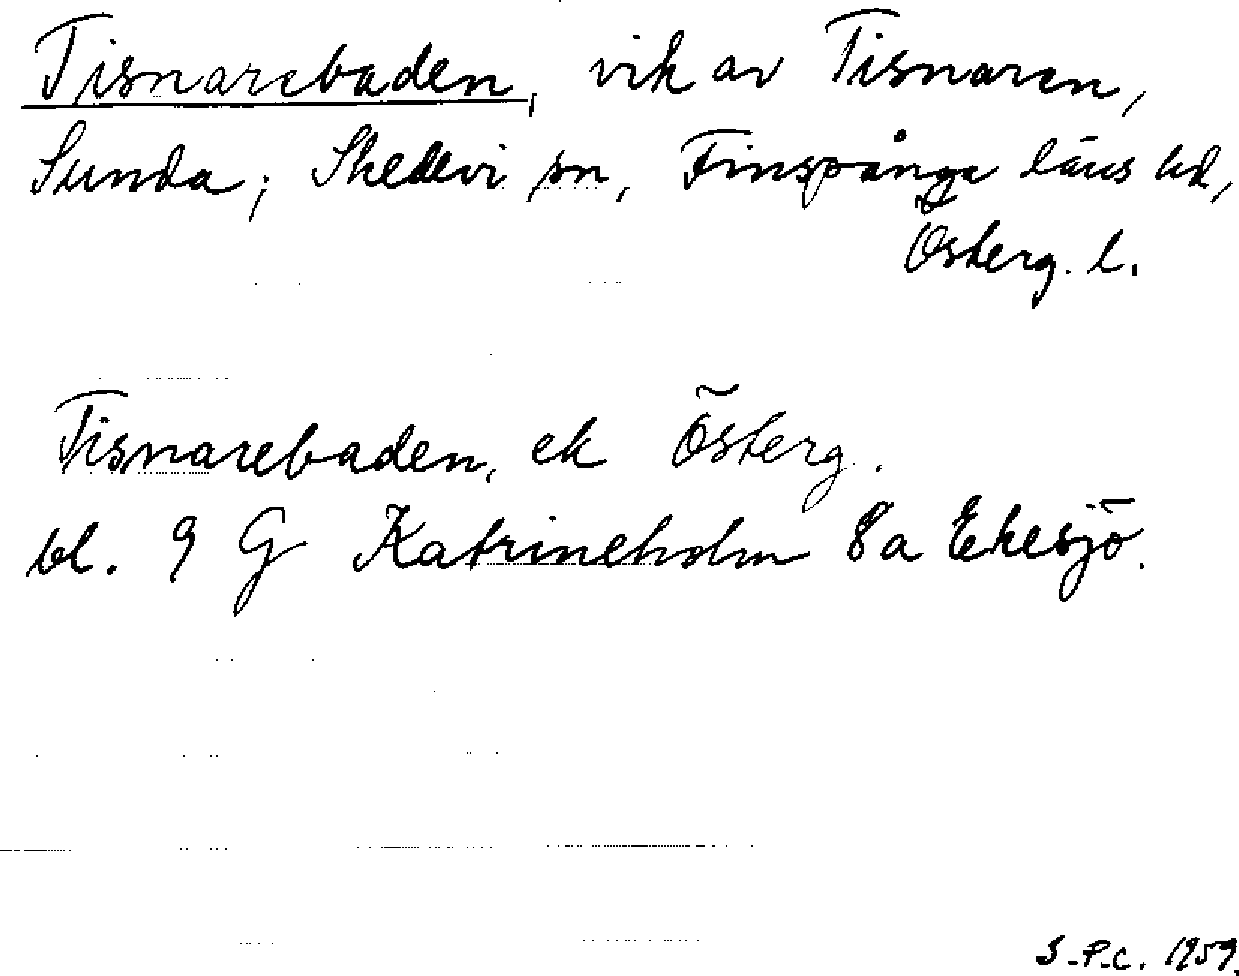 Tisnarebaden, vik av Tisnaren,
Sunda; Skedevi sn, Finspånga läns hd,
Österg. l.
Tisnarebaden, ek Österg.
bl. 9 G Katrineholm 8a Ekesjö.
S-P.C. 1959.